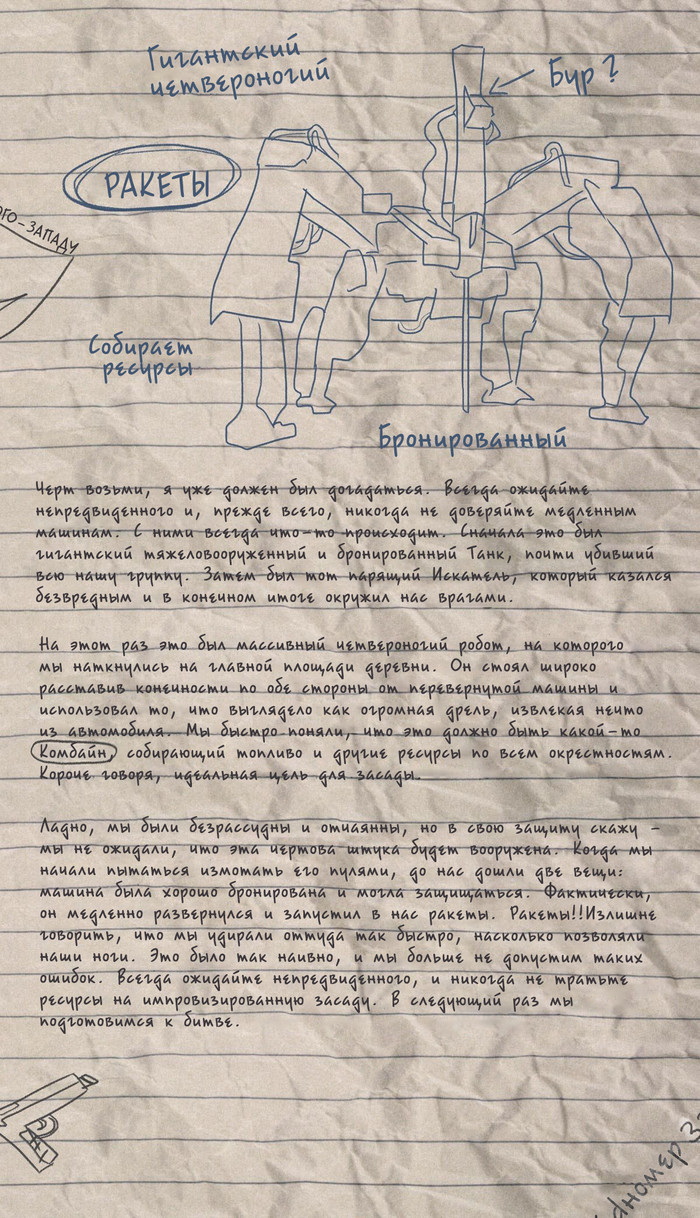 Гигантский
четвероногий
Бур?
РАКЕТЫ
ЗАПАДУ
Собирает
ресурсы
Бронированный
Черт возьми, я уже должен был догадаться. Всегда ожидайте
непредвиденного и, прежде всего, никогда не доверяйте медленным
машинам. С ними всегда что-то происходит. Сначала это был
гигантский тяжеловооруженный и бронированный Танк, почти убивший
всю нашу группу. Затем был тот парящий Искатель, который казался
безвредным и в конечном итоге окружил нас врагами.
На этот раз это был массивный четвероногий робот, на которого
мы наткнулись на главной площади деревни. Он стоял широко
расставив конечности по обе стороны от перевернутой машины и
использовал то, что выглядело как огромная дрель, извлекая нечто
из автомобиля. Мы быстро поняли, что это должно быть какой-то
Комбайн, собирающий топливо и другие ресурсы по всем окрестностям.
Короче говоря, идеальная цель для засады.
Ладно, мы были безрассудны и отчаянны, но в свою защиту скажу -
мы не ожидали, что эта чертова штука будет вооружена. Когда мы
начали пытаться измотать его пулями, до нас дошли две вещи:
машина была хорошо бронирована и могла защищаться. Фактически,
он медленно развернулся и запустил в нас ракеты. Ракеты!!Излишне
говорить, что мы удирали оттуда так быстро, насколько позволяли
наши ноги. Это было так наивно, и мы больше не допустим таких
ошибок. Всегда ожидайте непредвиденного, и никогда не тратьте
ресурсы на импровизированную засаду. В следующий раз мы
подготовимся к битве.